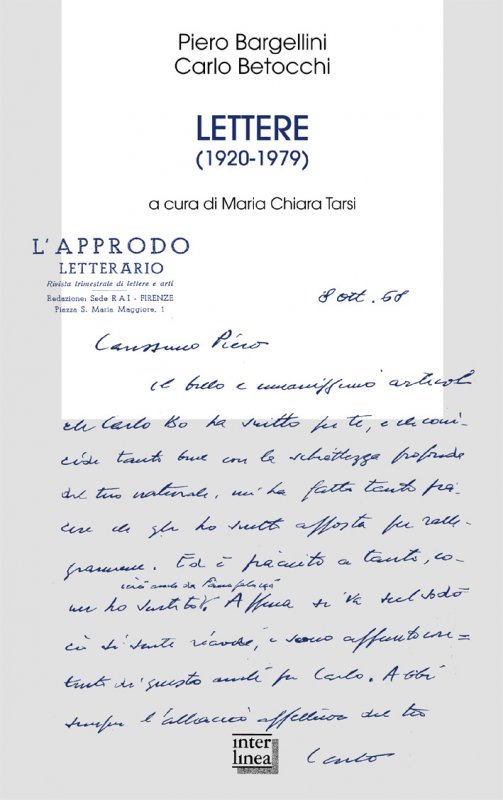 Piero Bargellini
Carlo Betocchi
LETTERE
(1920-1979)
a cura di Maria Chiara Tarsi
L'APPRODO
LETTERARIO
Rivista trimestrale di lettere e arti
Redazione: Sede RAI - FIRENZE
Piazza S. Maria Maggiore, 1
8 ott. 68
Carissimo Piero
il bello e umanissimo articolo
che Carlo Bo ha scritto per te, e che coin-
cide tanto bene con la schiettezza profonda
del tuo naturale, mi ha fatto tanto pia-
cere che gli ho scritto apposta per ralle-
grarmene. Ed è piaciuto a tanti, co-
me ho sentito
Appena si va sul sodo
ci si sente
e sono
di questo anche per Carlo. Abbi
sempre l'abbraccio affettuoso del tuo
Carlo
inter
linea